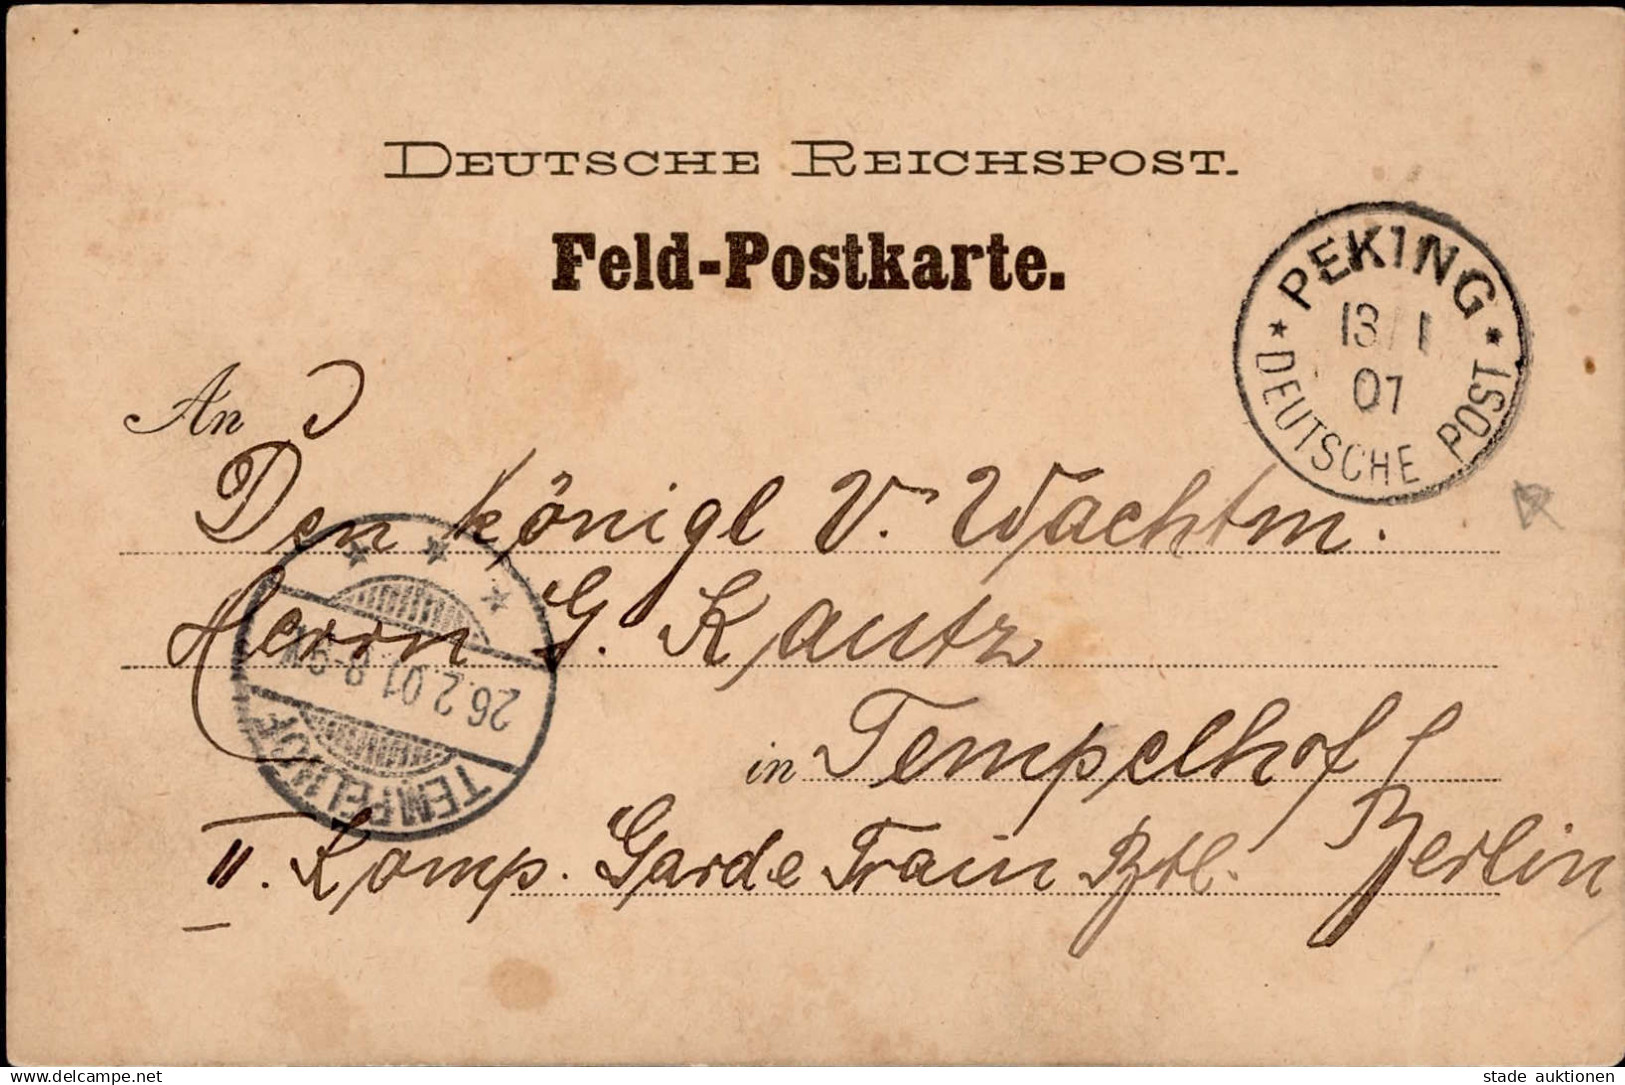 DEUTSCHE REICHSPOST.
Feld-Postkarte.
PEKING
13/1
01
DEUTSCHE POST
An
Den königl V. Wachtm.
Herrn G. Kautz
in Tempelhof
II. Komp. Garde Train Btl. Berlin
TEMPELHOF
26.2.01.8-9V
www.delcampe.net
stade auktionen